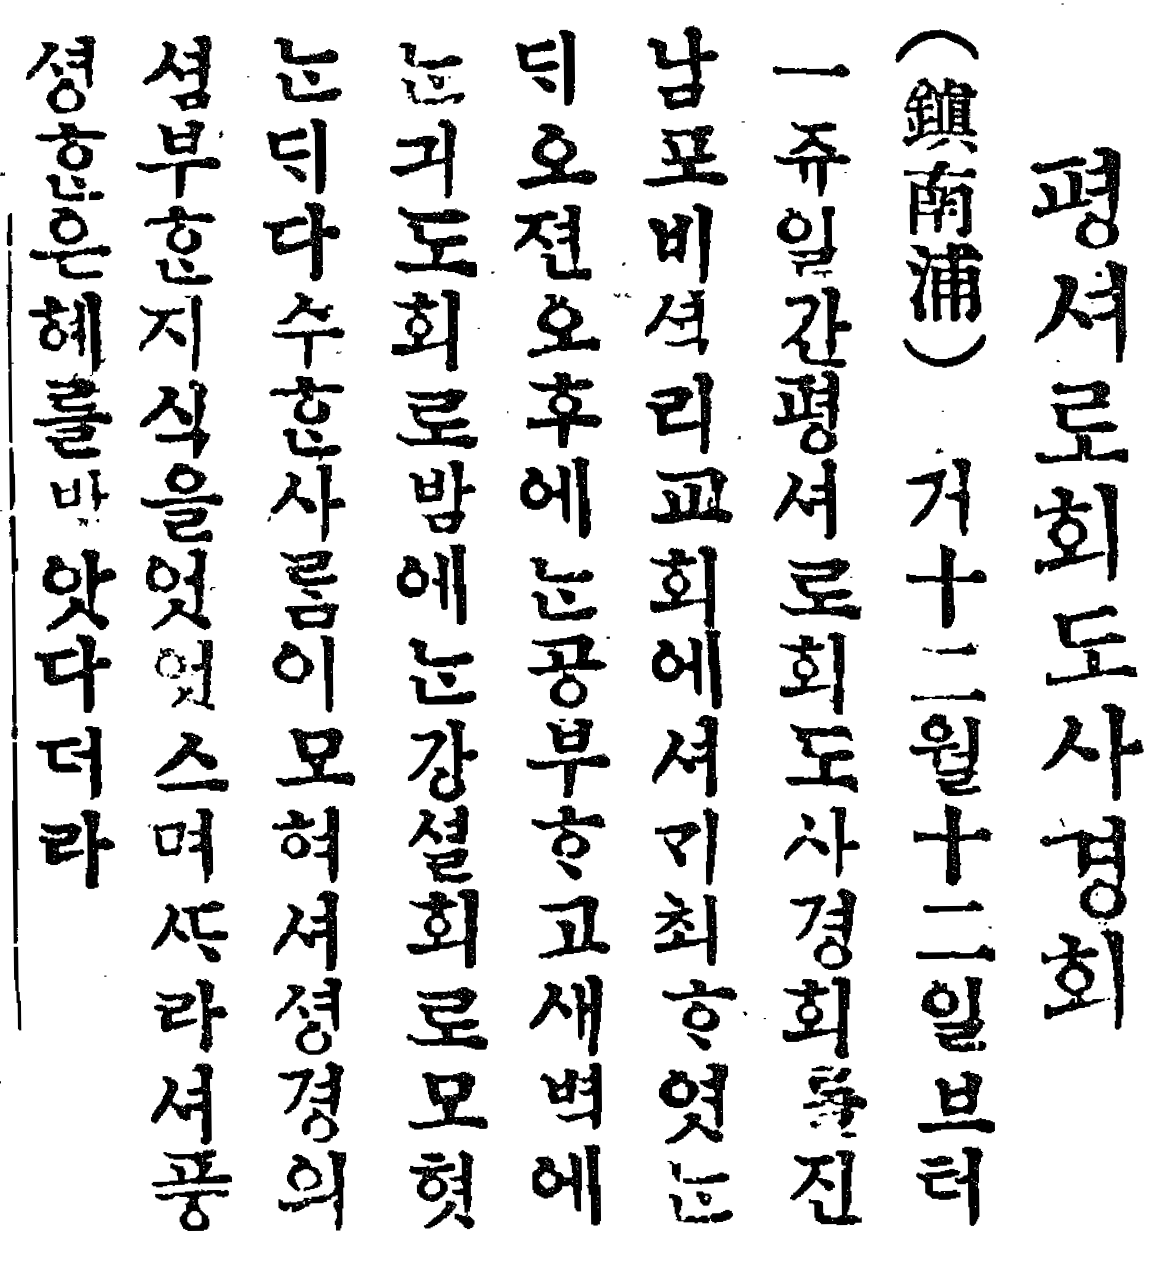 평셔로회도사경회
(鎭南浦) 거十二월十二일브터
一쥬일간평셔로회도사경회를진
남포비셕리교회에셔기최ᄒᆞ엿ᄂᆞᆫ
ᄃᆡ오젼오후에ᄂᆞᆫ공부ᄒᆞ고새벽에
ᄂᆞᆫ긔도회로밤에ᄂᆞᆫ강셜회로모혓
ᄂᆞᆫᄃᆡ다수ᄒᆞᆫ사름이모혀셔셩경의
셤부ᄒᆞᆫ지식을엇엇스며ᄯᆞ라셔풍
셩ᄒᆞᆫ은혜를밧앗다더라